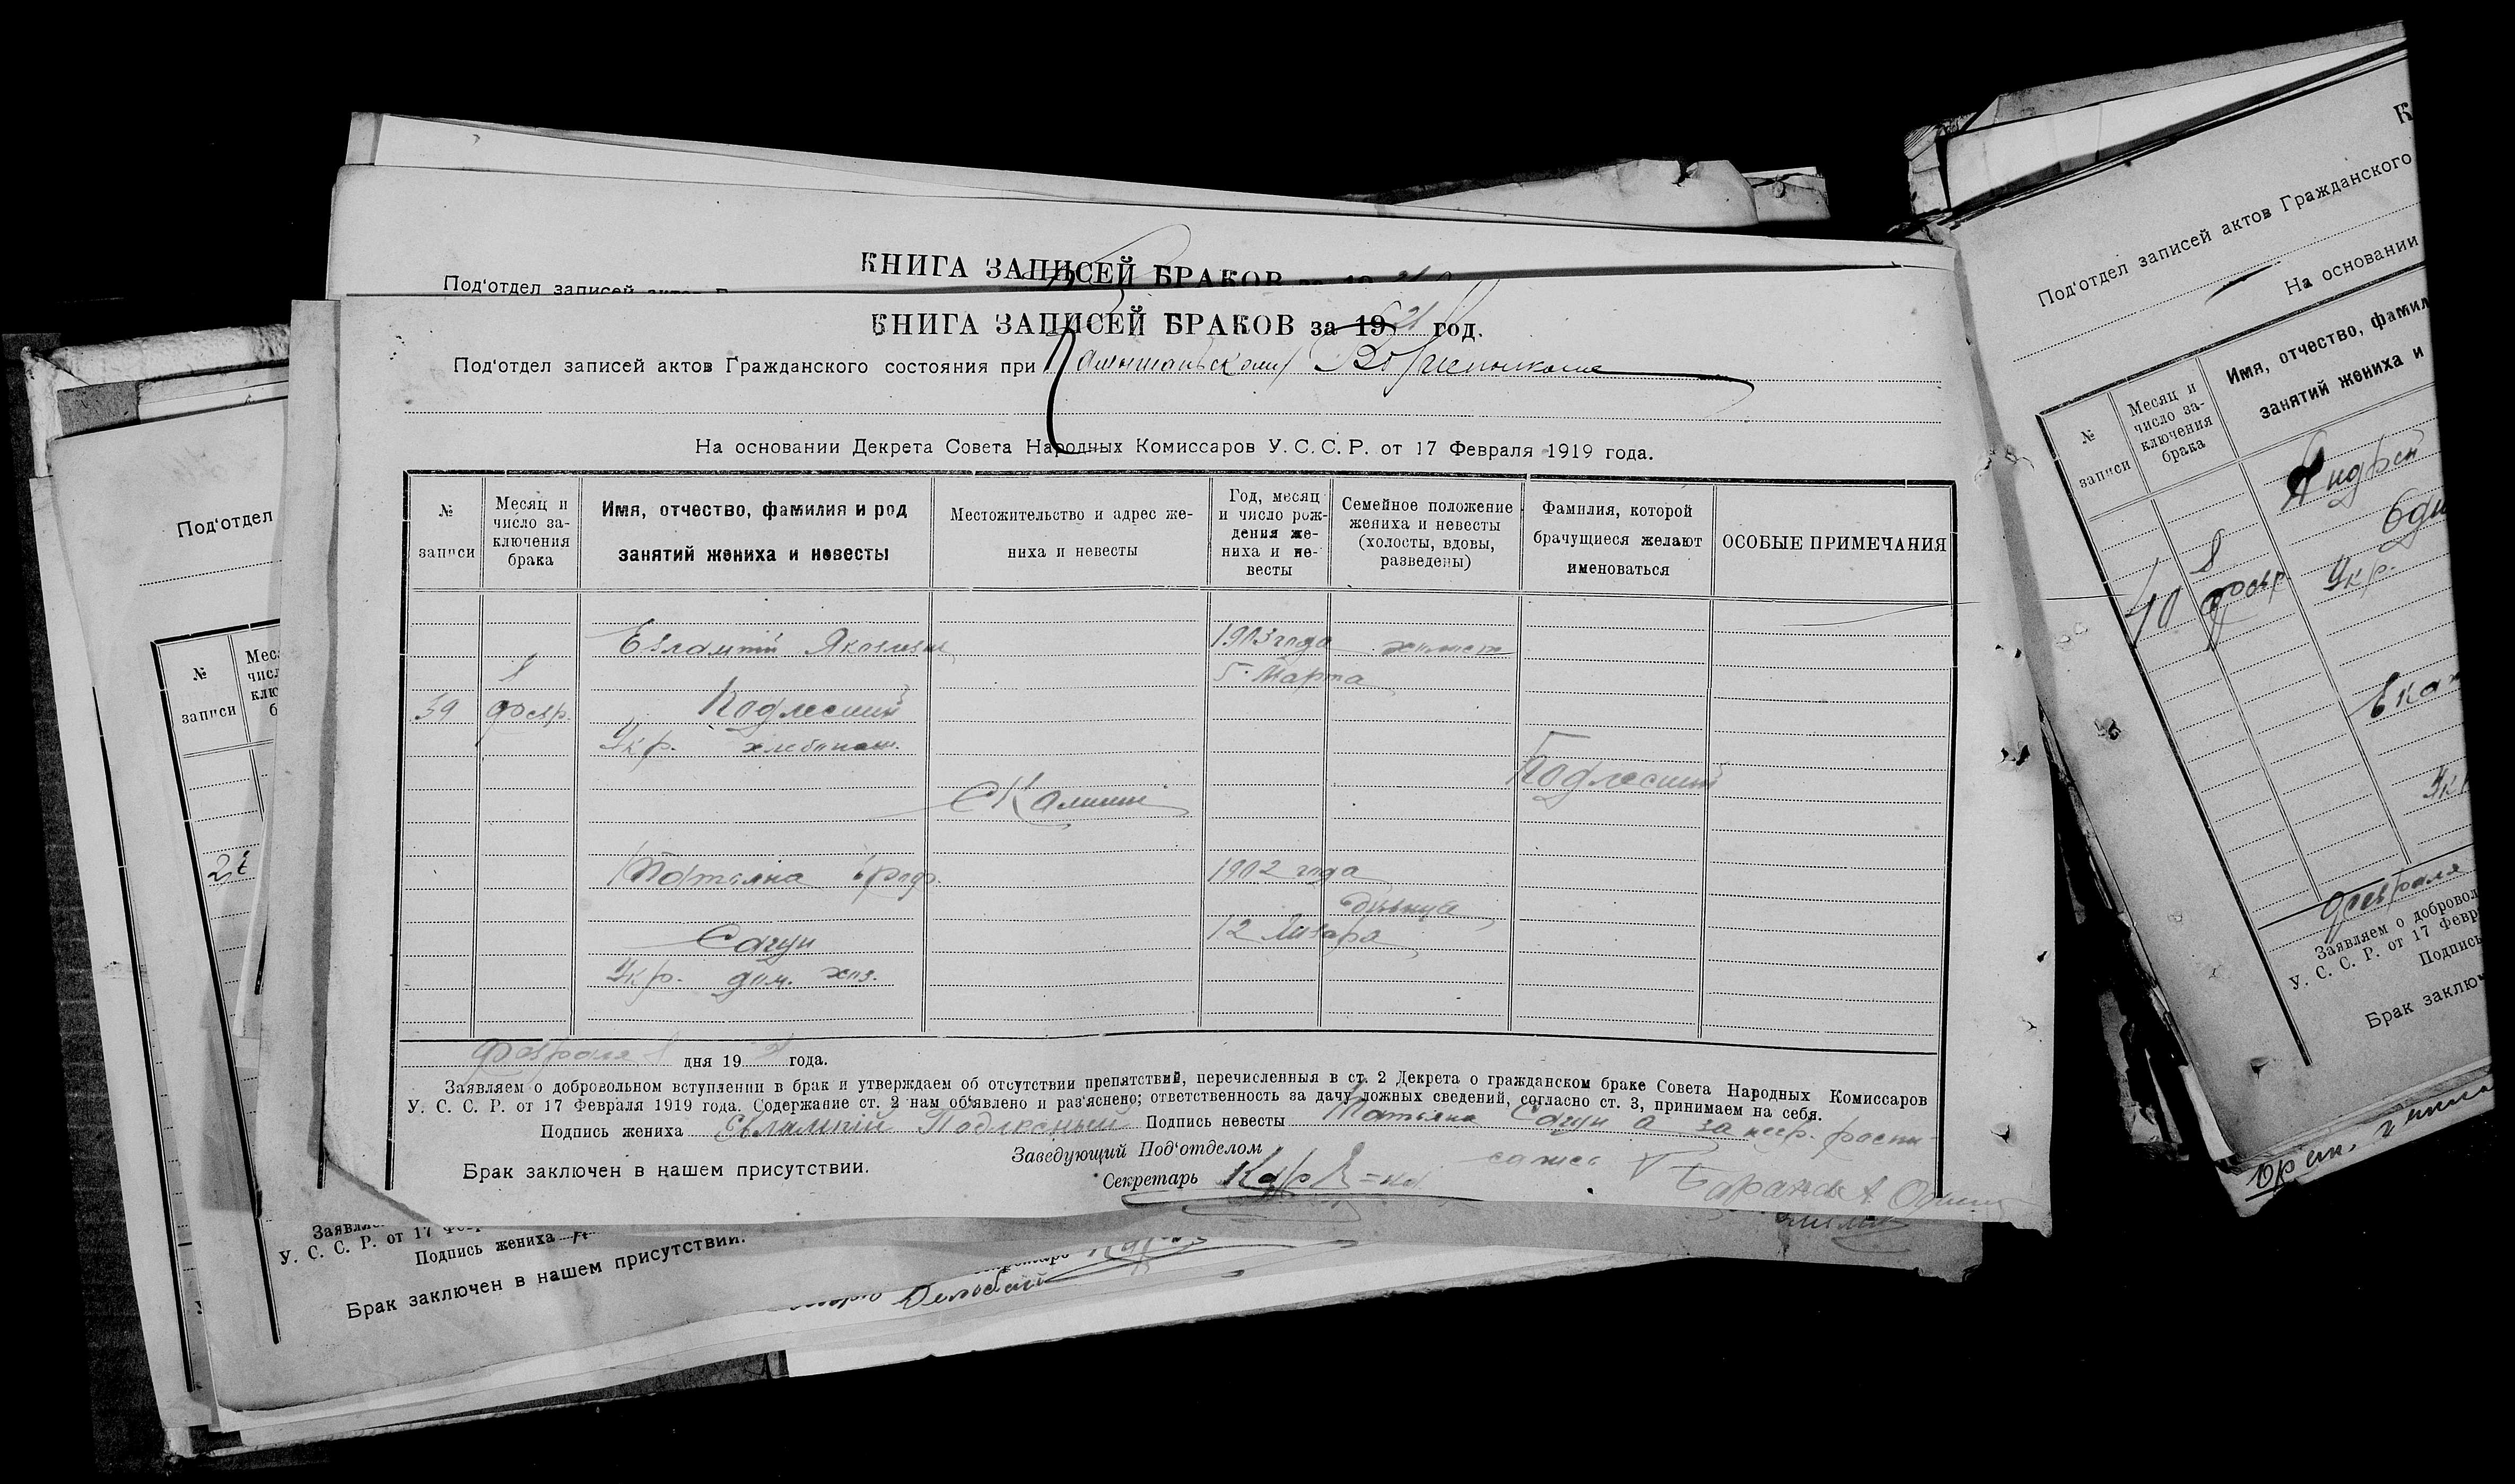 КНИГА ЗАПИСЕЙ БРАКОВ за 19 21
Под'отдел записей актов
КНИГА ЗАПИСЕЙ БРАКОВ за 1921 год.
Под'отдел записей актов Гражданского состояния при
На основании Декрета Совета Народных Комиссаров У. С. С. Р. от 17 Февраля 1919 года.
№ записи
Месяц и число заключения брака
Имя, отчество, фамилия и род занятий жениха и невесты
Местожительство и адрес жениха и невесты
Год, месяц и число рождения жениха и невесты
Семейное положение жениха и невесты (холосты, вдовы, разведены)
Фамилия, которой брачущиеся желают именоваться
ОСОБЫЕ ПРИМЕЧАНИЯ
Евлампий Яковлевич 1903 года холост
8 5 Марта
39 Февр. Подлесний
Укр. хлебопаш.
Подлесний
Татьяна 1902 года
девица
Сагун 12 Января
Укр. дом. хоз.
Февраля 8 дня 1921 года.
Заявляем о добровольном вступлении в брак и утверждаем об отсутствии препятствий, перечисленныя в ст. 2 Декрета о гражданском браке Совета Народных Комиссаров
У. С. С. Р. от 17 Февраля 1919 года. Содержание ст. 2 нам об'явлено и раз'яснено; ответственность за дачу ложных сведений, согласно ст. 3, принимаем на себя.
Подпись жениха Евлампий Подлесный Подпись невесты Татьяна Сагун а за негр. распи-
Заведующий Под'отделом
Брак заключен в нашем присутствии.
Секретарь
Под'отдел
№ записи
21
Подпись жениха
У. С. С. Р. от 17
Брак заключен в нашем присутствии.
К
Под'отдел записей актов Гражданского
На основании
№ записи
Месяц и число заключения брака
Имя, отчество, фамил
занятий жениха и
8
40 Февр. Укр.
Февраля
Заявляем о доброволь
У. С. С. Р. от 17 Февр
Подпись
Брак заключ